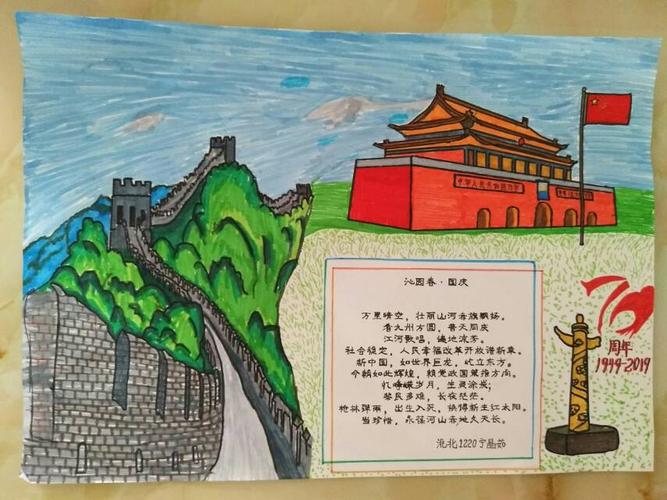 中华人民共和国万岁
沁园春·国庆
万里晴空，壮丽山河赤旗飘扬。
看九州方圆，普天同庆
江河歌唱，遍地流芳。
社会稳定，人民幸福改革开放谱新章。
新中国，如世界巨龙，屹立东方。
今朝如此辉煌，赖党政国策指方向。
忆峥嵘岁月，生灵涂炭，
黎民多难，长夜茫茫。
枪林弹雨，出生入死，换得新生红太阳。
当珍惜，永葆河山赤地久天长。
淮北1220宁晶茹
70
周年
1949-2019